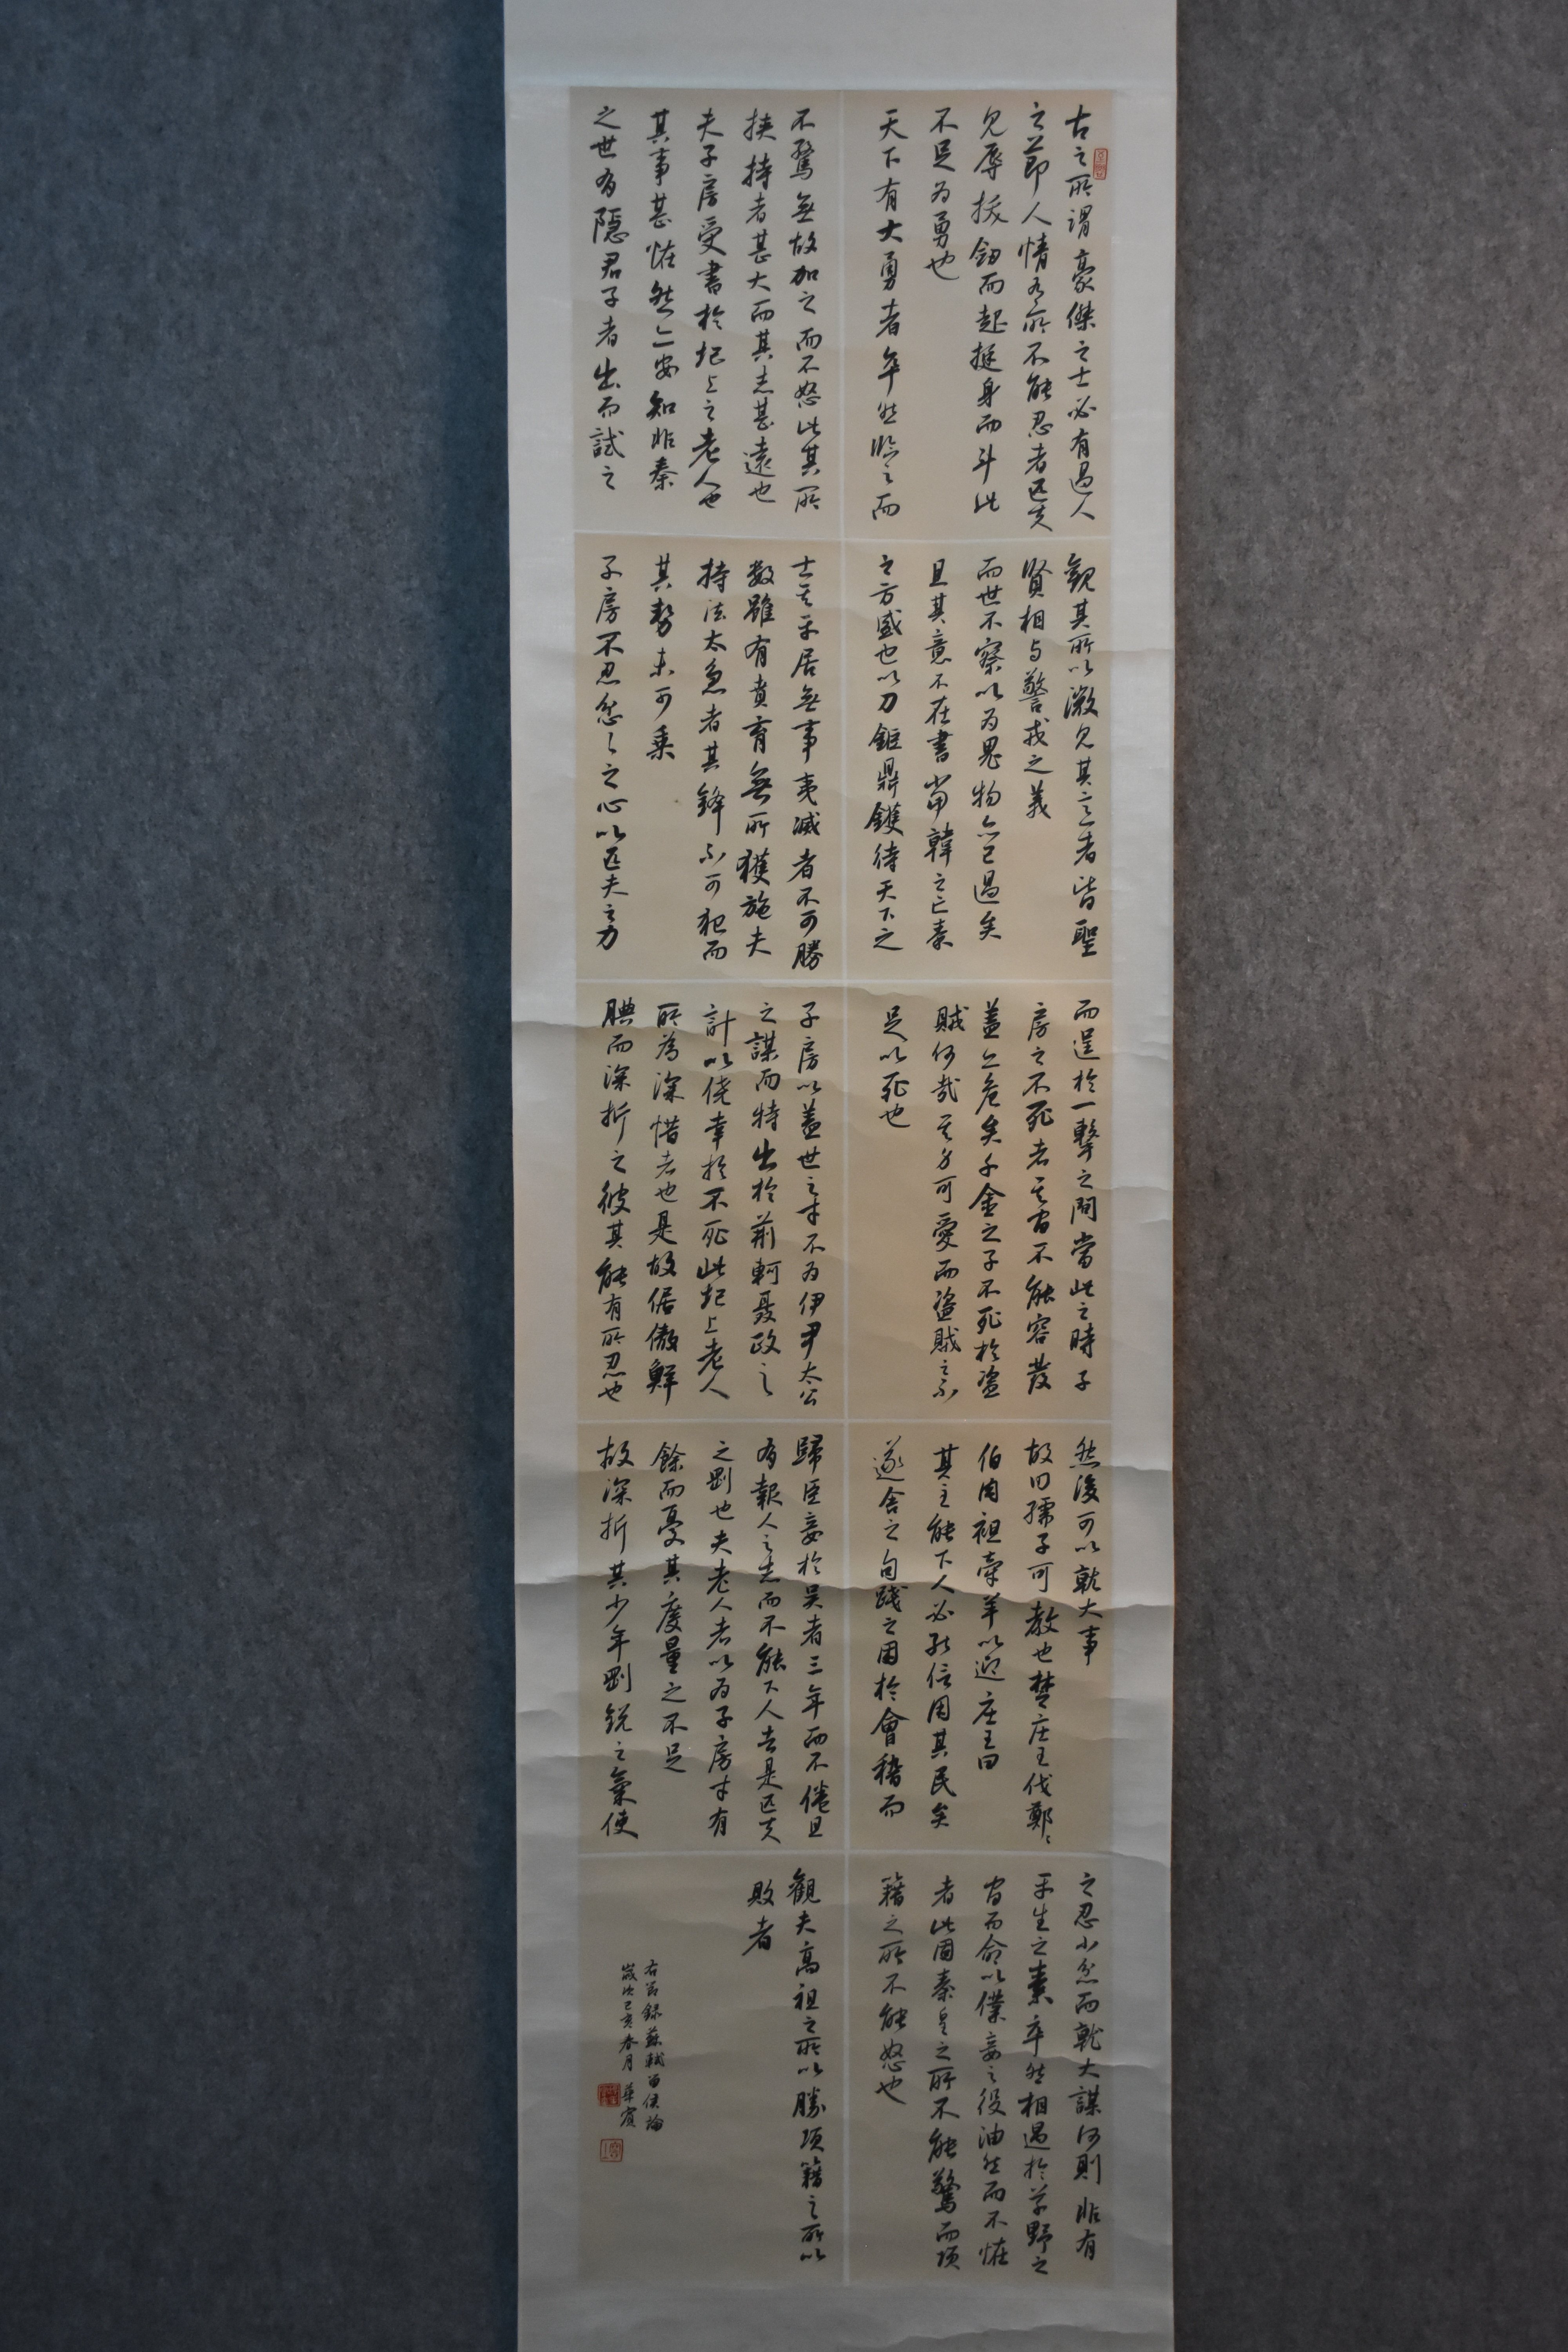 古之所謂豪傑之士必有過人
之節人情有所不能忍者匹夫
見辱拔劒而起挺身而斗此
不足为勇也
天下有大勇者卒然臨之而
不驚無故加之而不怒此其所
挾持者甚大而其志甚遠也
夫子房受書於圯上之老人也
其事甚怪然亦安知非秦
之世有隱君子者出而試之
觀其所以微見其意者皆聖
賢相与警戒之義
而世不察以为鬼物亦已過矣
且其意不在書當韓之亡秦
之方盛也以刀鋸鼎鑊待天下之
士其平居無事夷滅者不可勝
数雖有賁育無所獲施夫
持法太急者其鋒不可犯而
其勢未可乘
子房不忍忿々之心以匹夫之力
而逞於一擊之間當此之時子
房之不死者其間不能容髮
蓋亦危矣千金之子不死於盜
賊何哉其身可愛而盜賊之不
足以死也
子房以蓋世之才不为伊尹太公
之謀而特出於荊軻聶政之
計以僥幸於不死此圯上老人
所為深惜者也是故倨傲鮮
腆而深折之彼其能有所忍也
然後可以就大事
故曰孺子可教也楚庄王伐鄭々
伯肉袒牽羊以迎庄王曰
其主能下人必能信用其民矣
遂舍之句踐之困於會稽而
歸臣妾於吳者三年而不倦且
有報人之志而不能下人者是匹夫
之剛也夫老人者以为子房才有
餘而憂其度量之不足
故深折其少年剛銳之氣使
之忍小忿而就大謀何則非有
平生之素卒然相遇於草野之
間而命以僕妾之役油然而不怪
者此固秦皇之所不能驚而項
籍之所不能怒也
觀夫高祖之所以勝項籍之所以
敗者
右節錄蘇軾留侯論
歲次己亥春月 華賓